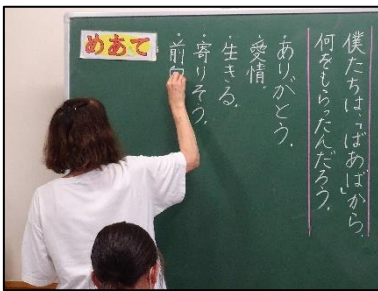 僕たちは、「ばあば」から、
何をもらったんだろう。
・ありがとう。
・愛情。
・生きる。
・寄りそう。
・前向
めあて